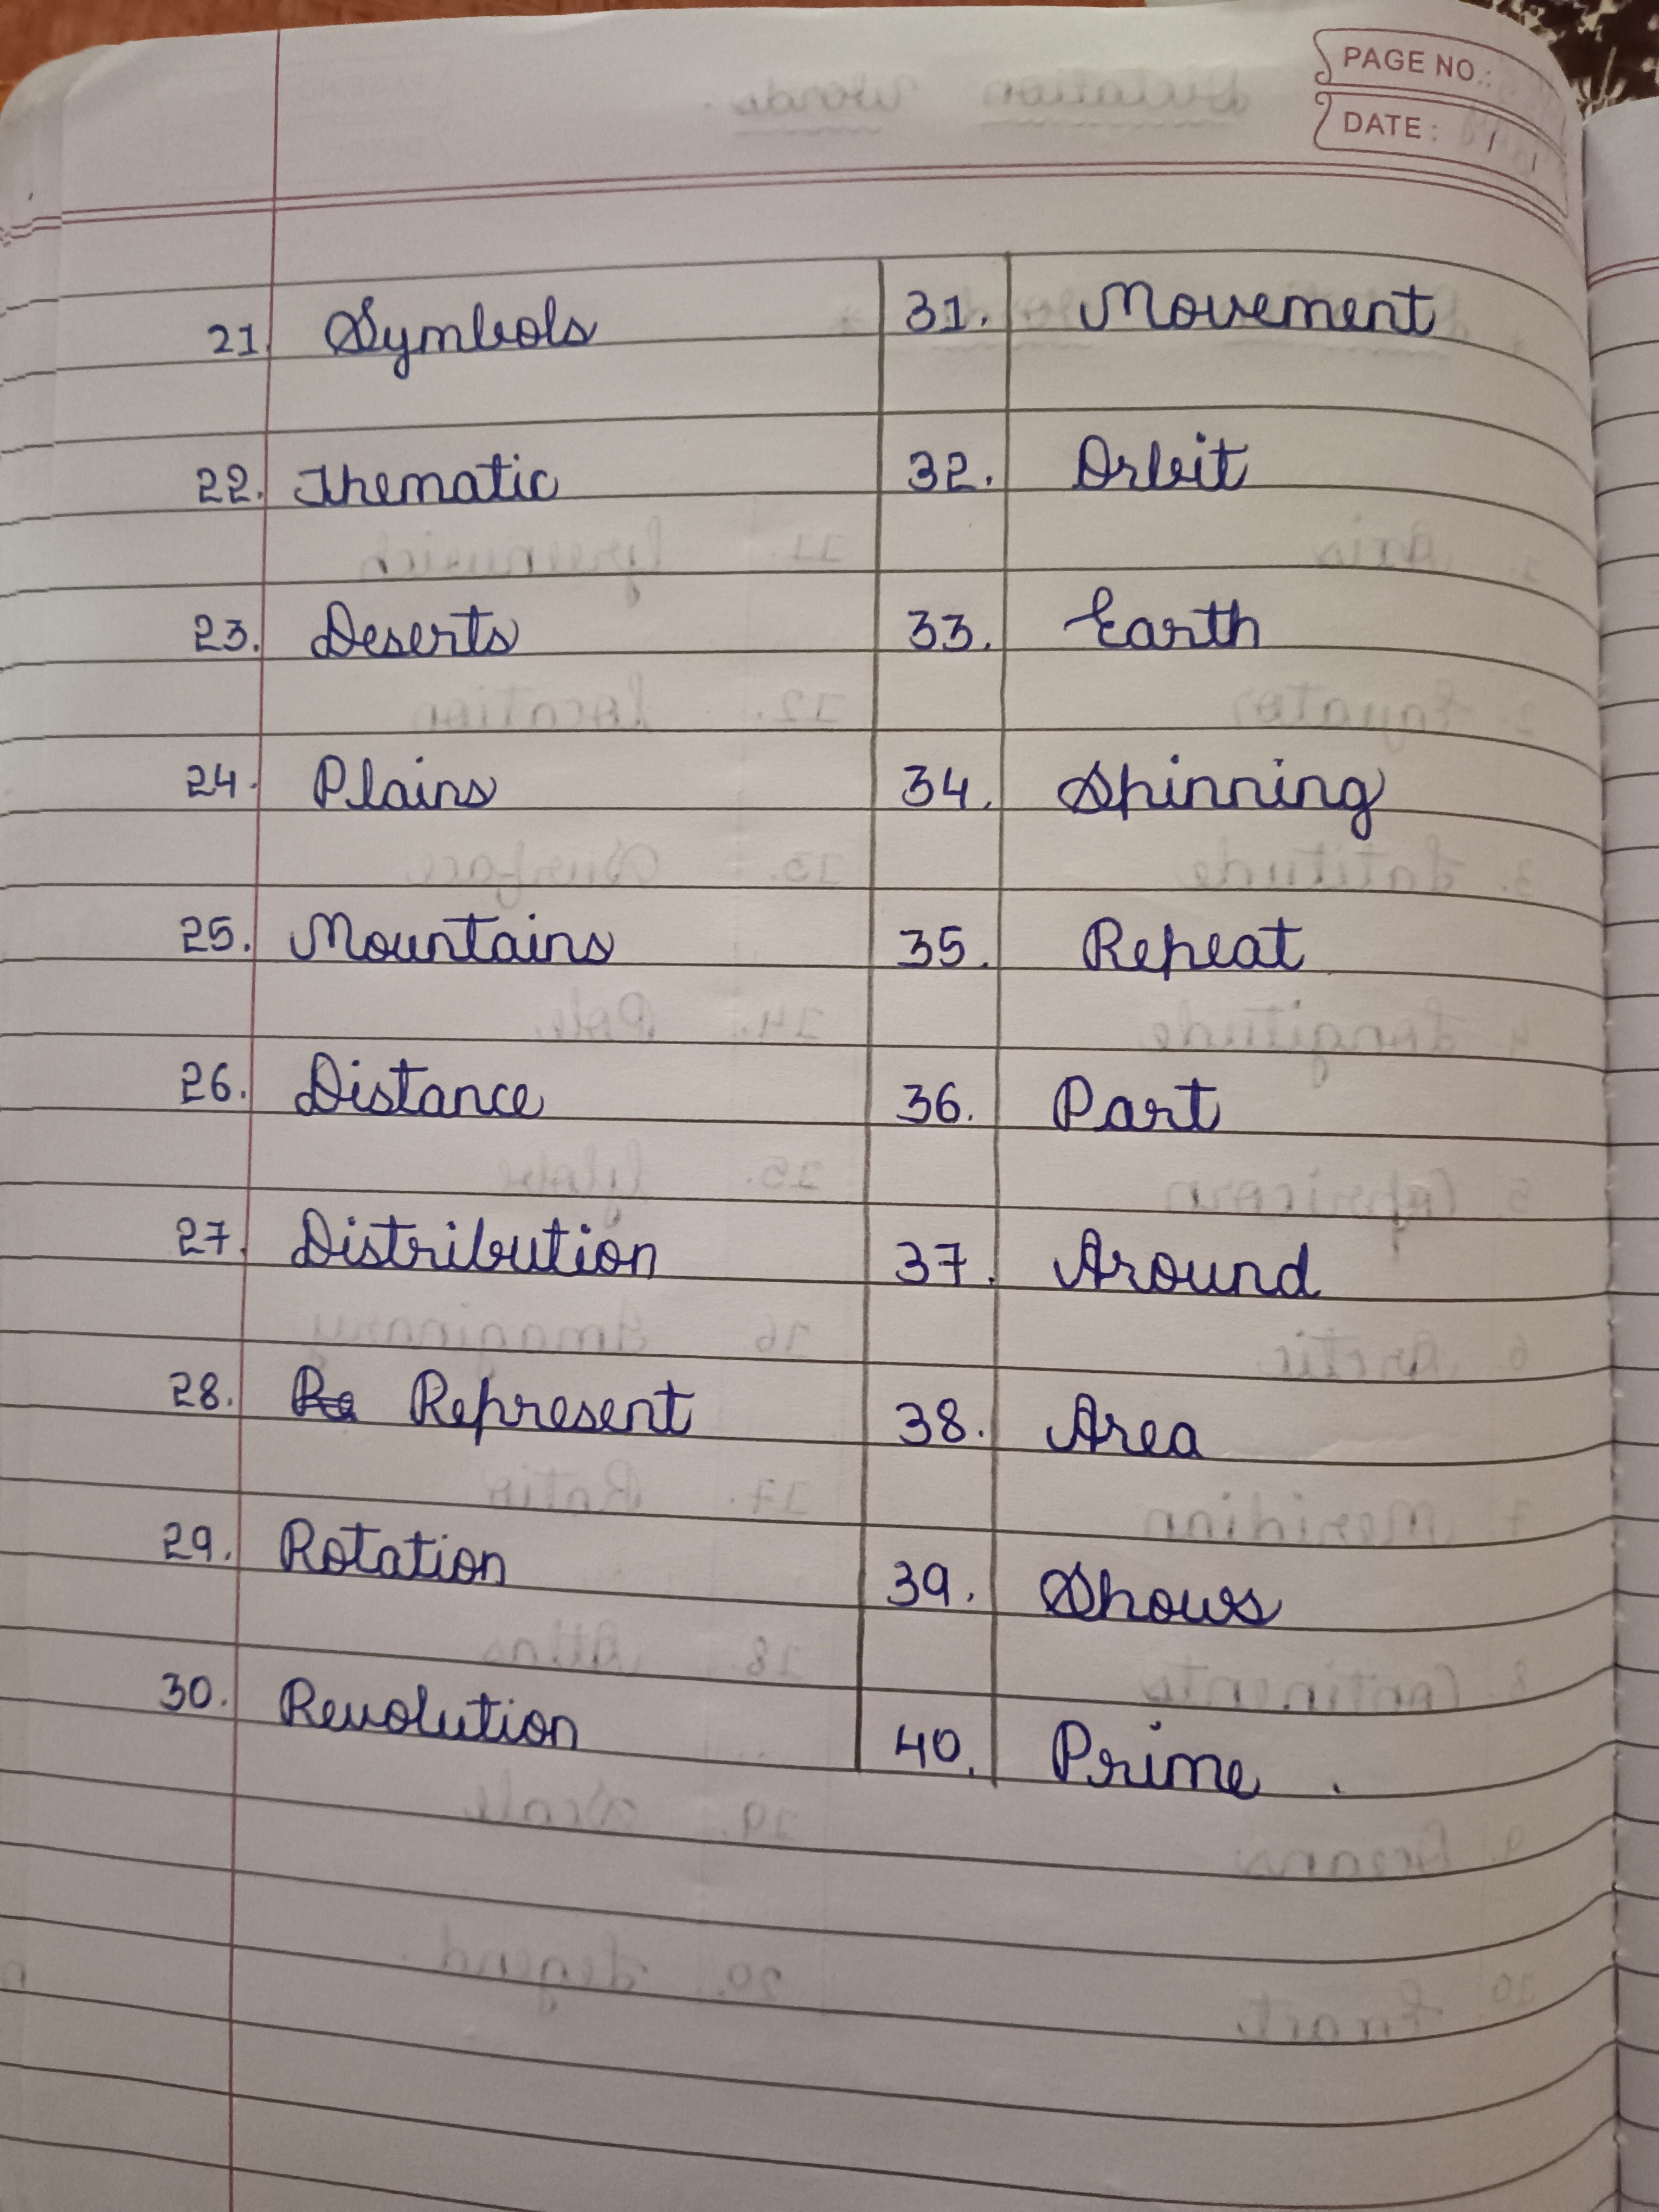 PAGE NO.:
DATE: / /
21. Symbols 31. Movement
22. Thematic 32. Orbit
23. Deserts 33. Earth
24. Plains 34. Spinning
25. Mountains 35. Repeat
26. Distance 36. Part
27. Distribution 37. Around
28. Re Represent 38. Area
29. Rotation 39. Shows
30. Revolution 40. Prime .